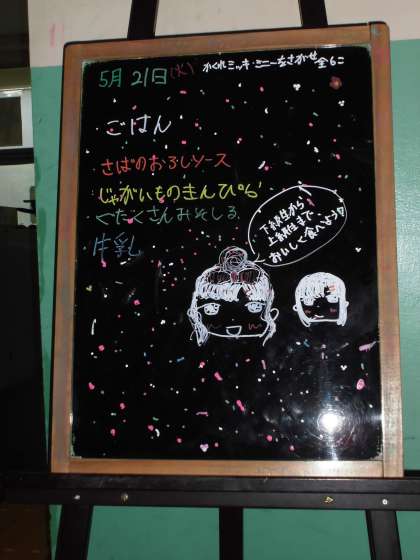 5月21日(火)
かくれミッキー・ミニーをさがせ 全6こ
ごはん
さばのおろしソース
じゃがいものきんぴら
ぐたくさんみそしる
牛乳
下級生から
上級生まで
おいしく食べよう!